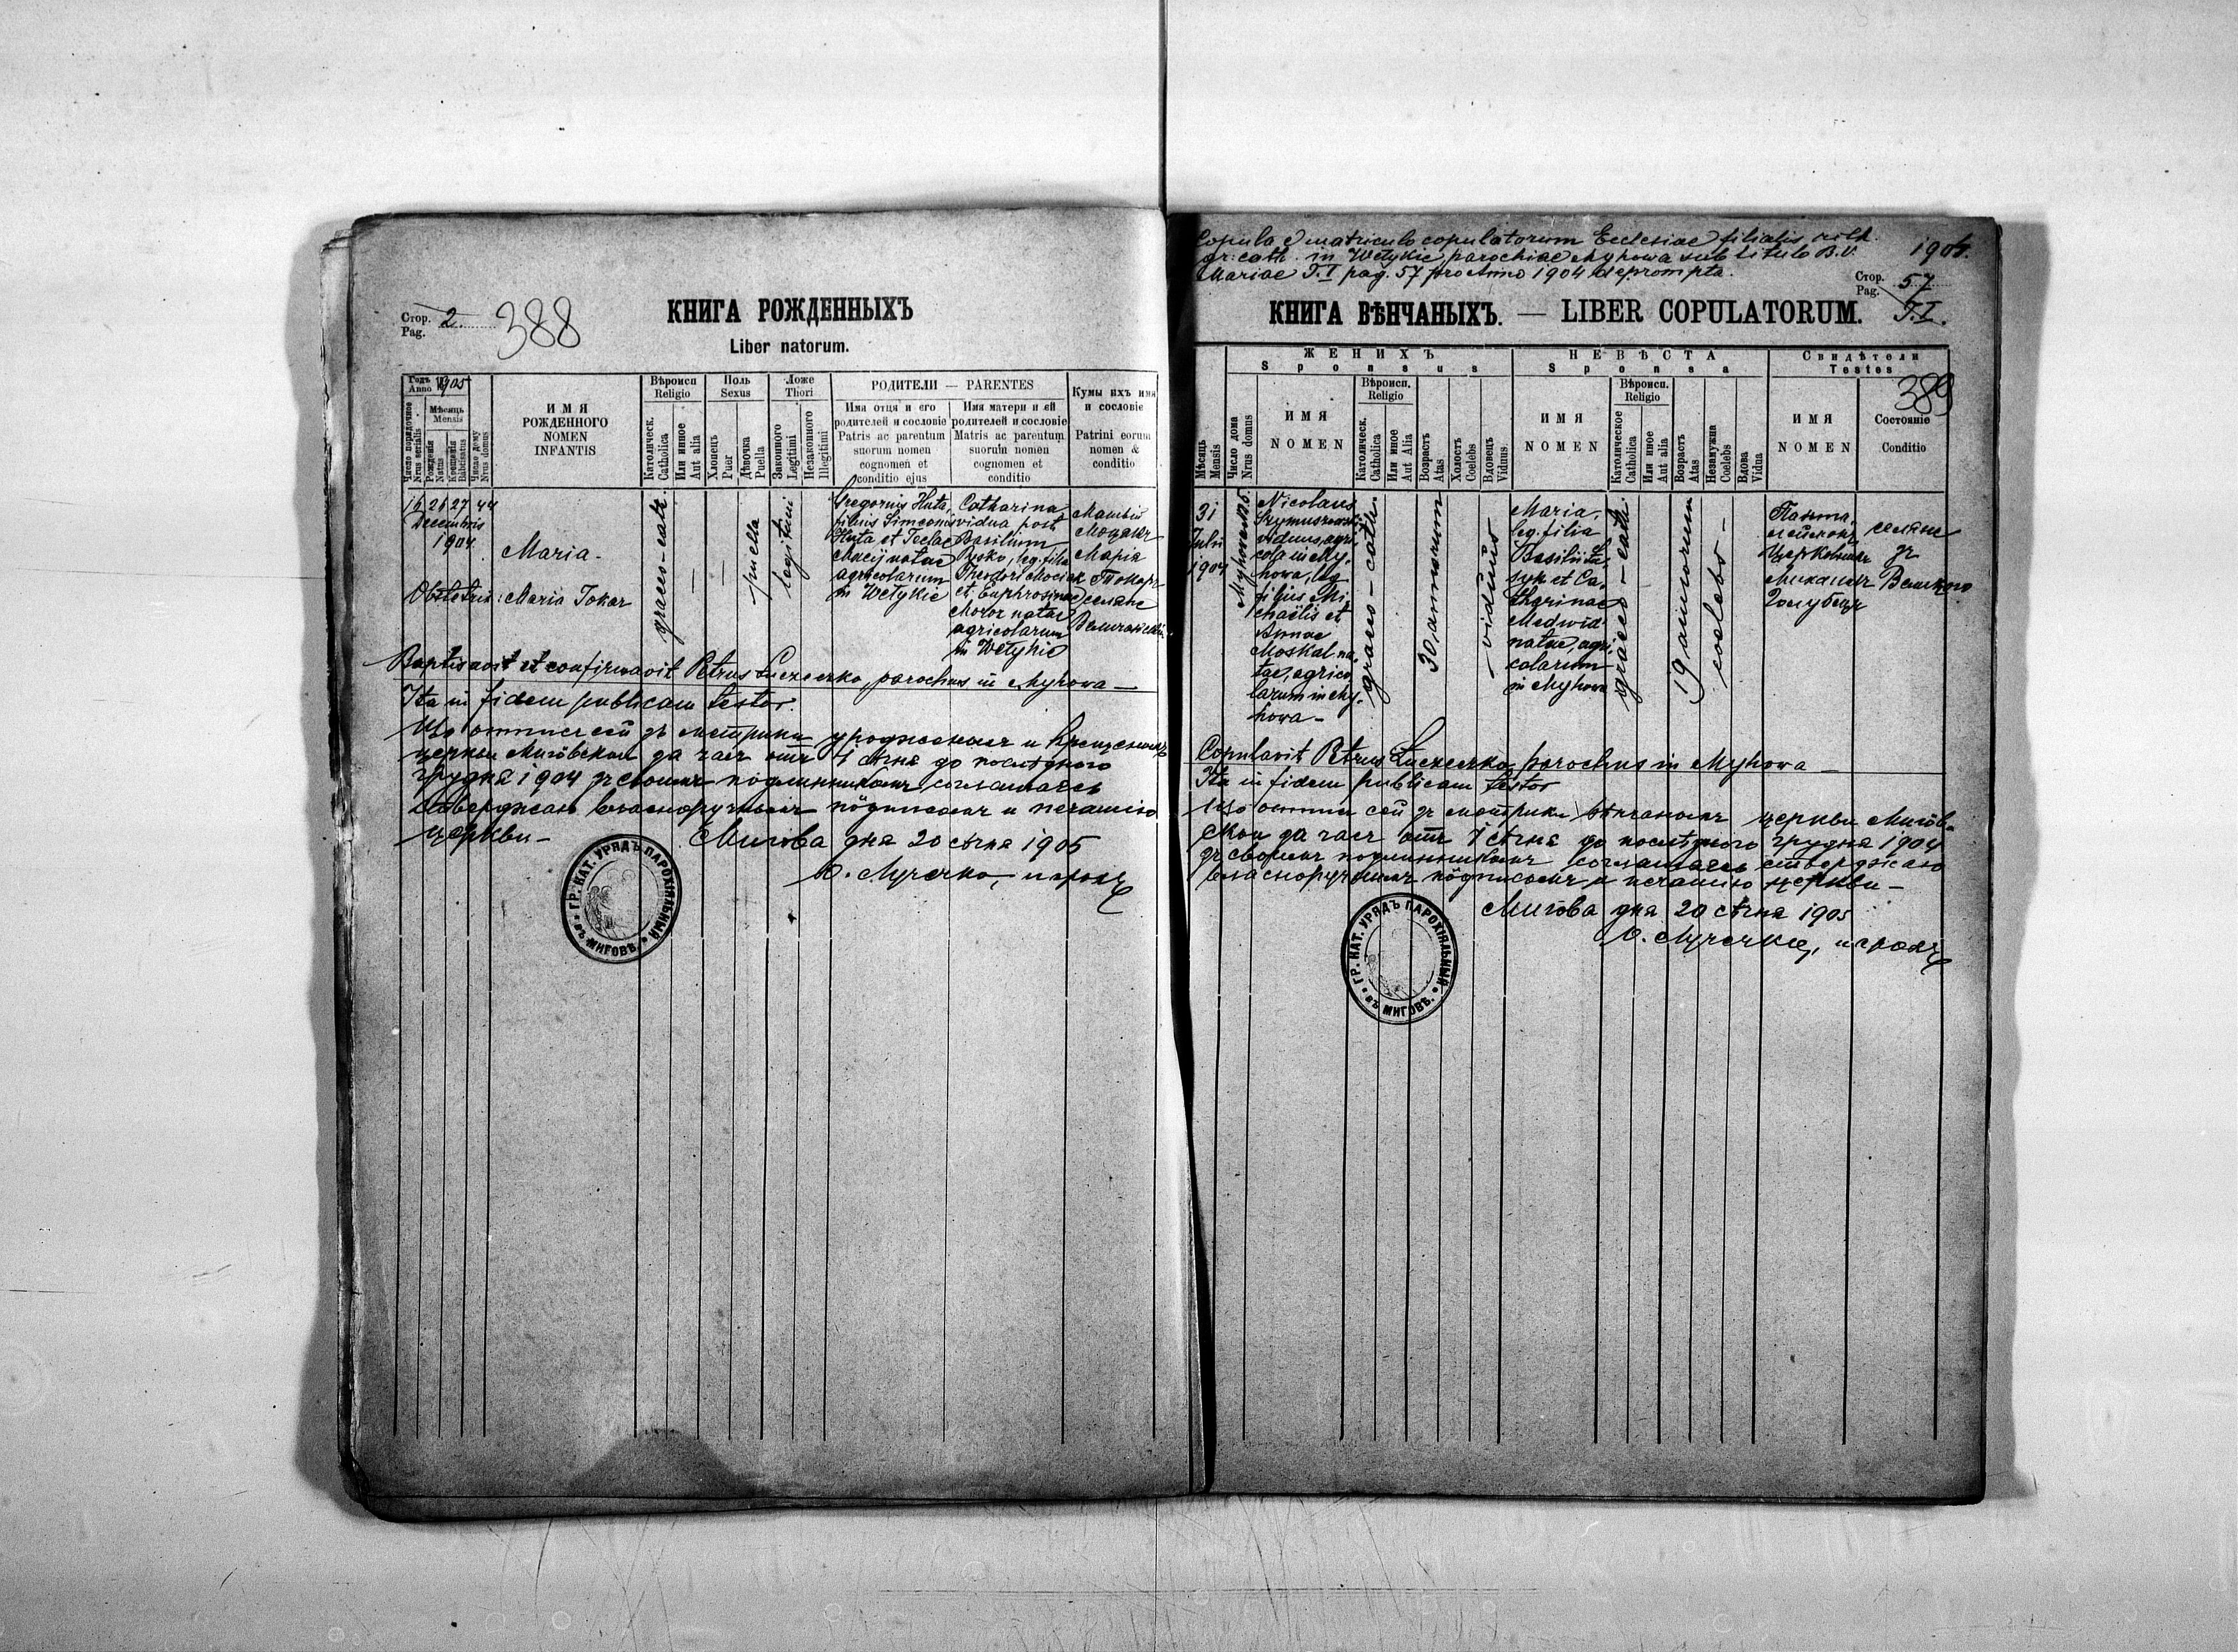 Стор.
Pag. 2.
388
КНИГА РОЖДЕННЫХЪ
Liber natorum.
Годъ
Anno 1905
Мѣсяць
Mensis
Число порядочное
Nrus serialis
Рожденія
Natus
Крещенія
Babtisatus
Число дому
Nrus domus
ИМЯ
РОЖДЕННОГО
NOMEN
INFANTIS
Вѣроисп
Religio
Католическ.
Catholica
Или инное
Aut alia
Поль
Sexus
Хлопець
Puer
Дѣвочка
Puella
Ложе
Thori
Законного
Legitimi
Незаконного
Illegitimi
РОДИТЕЛИ — PARENTES
Имя отця и его
родителей и сословіе
Patris ac parentum
suorum nomen
cognomen et
conditio ejus
Имя матери и ей
родителей и сословіе
Matris ac parentum
suorum nomen
cognomen et
conditio
Кумы ихъ имя
и сословіе
Patrini eorum
nomen &
conditio
16 26 27 44
Decembris
1904
Maria
Obstetrix: Maria Tokar
graeco-cath.
puella
legitimi
Gregorius Huta,
filius Simeonis
Huta et Teclae
Macij natae
agricolarum
in Wełykie
Catharina
vidua post
Basilium
Rusko, leg. filia
Theodori Mociak
et Euphrosinae
Moroz natae
agricolarum
in Wełykie
Матвій
Моцакъ
Марія
Токаръ
селяне
Baptisavit et confirmavit Petrus Łuczeczko, parochus in Myhowa —
Ita in fidem publicam testor.
Що оттиск сей зъ метрики уродженыхъ и крещеныхъ
церкви Миговскои за часъ отъ 1 сѣчня до послѣдного
грудня 1904 зъ своимъ подлинникомъ согласаесь
ствержаю власноручнымъ пôдписомъ и печатію
церкви —
Мигова дня 20 сѣчня 1905
ГР. КАТ. УРЯДЪ ПАРОХІЯЛЬНЫЙ
въ МИГОВѢ.
Copula e matriculo copulatorum Ecclesiae filialis rith.
gr: cath. in Wełykie, parochiae Myhowa sub titulo B.V.
Mariae T.I pag. 57 pro Anno 1904 deprompta.
1904.
Стор.
Pag. 57
T.I.
КНИГА ВѢНЧАНЫХЪ. — LIBER COPULATORUM.
389
Мѣсяць
Mensis
Число дома
Nrus domus
ЖЕНИХЪ
Sponsus
ИМЯ
NOMEN
Вѣроисп.
Religio
Католическ.
Catholica
Или иное
Aut Alia
Возрастъ
Atas
Холостъ
Coelebs
Вдовець
Viduus
НЕВѢСТА
Sponsa
ИМЯ
NOMEN
Вѣроисп.
Religio
Католическое
Catholica
Или иное
Aut alia
Возрастъ
Atas
Незамужна
Coelebs
Вдова
Vidua
Свидѣтели
Testes
ИМЯ
NOMEN
Состояніе
Conditio
31
Julii
1904
Nicolaus
viduus, agri
cola in My-
howa, leg.
filius Mi
chaëlis et
Annae
Moskal na-
tae, agrico
larum in My-
howa —
graeco-cath.
30 annorum
viduus
Maria,
leg. filia
Basilii
et Ca-
tharinae
Medwid
natae, agri
colarum
in Myhowa
graeco-cath.
19 annorum
coelebs
Михаилъ
селяне
зъ
Copulavit Petrus Łuczeczko, parochus in Myhowa —
Ita in fidem publicam testor
Що оттиск сей зъ метрики вѣнчаныхъ церкви Мигôв-
скои за часъ отъ 1 сѣчня до послѣдного грудня 1904
зъ своимъ подлинникомъ согласаесь стверджаю
власноручнымъ пôдписомъ и печатію церкви —
Мигôва дня 20 сѣчня 1905
ГР. КАТ. УРЯДЪ ПАРОХІЯЛЬНЫЙ
въ МИГОВѢ.